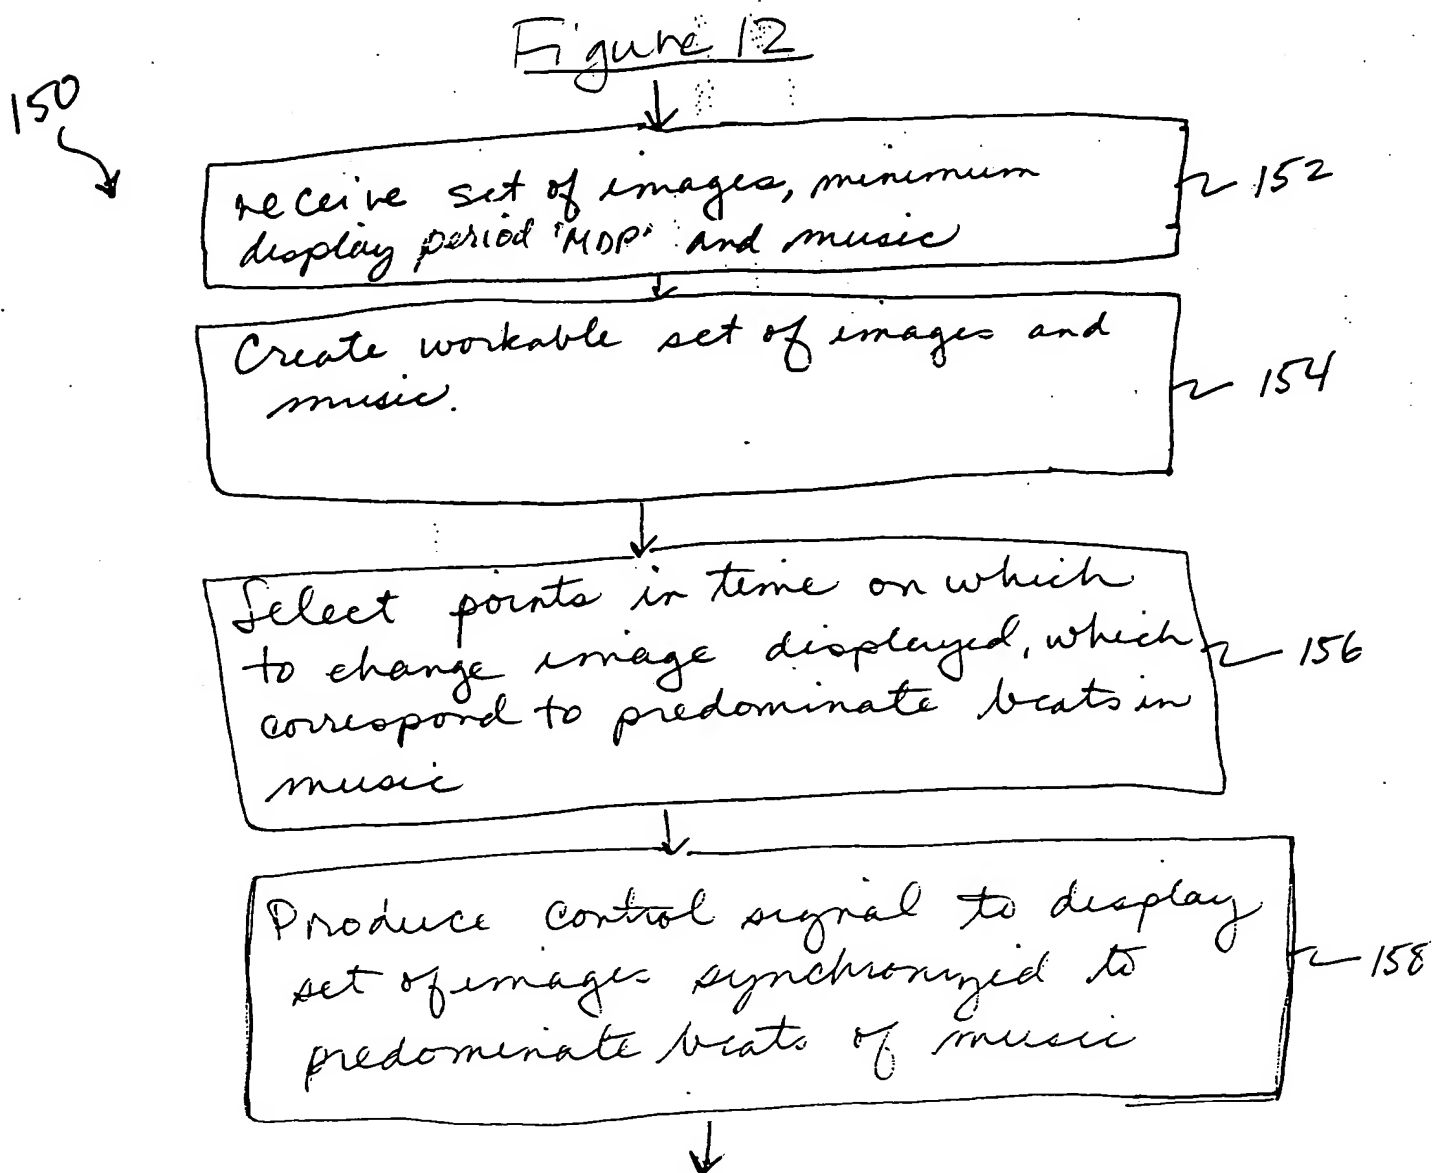 Figure 12
150
receive set of images, minimum
display period "MDP" and music
152
Create workable set of images and
music.
154
Select points in time on which
to change image displayed, which
correspond to predominate beats in
music
156
Produce control signal to display
set of images synchronized to
predominate beats of music
158